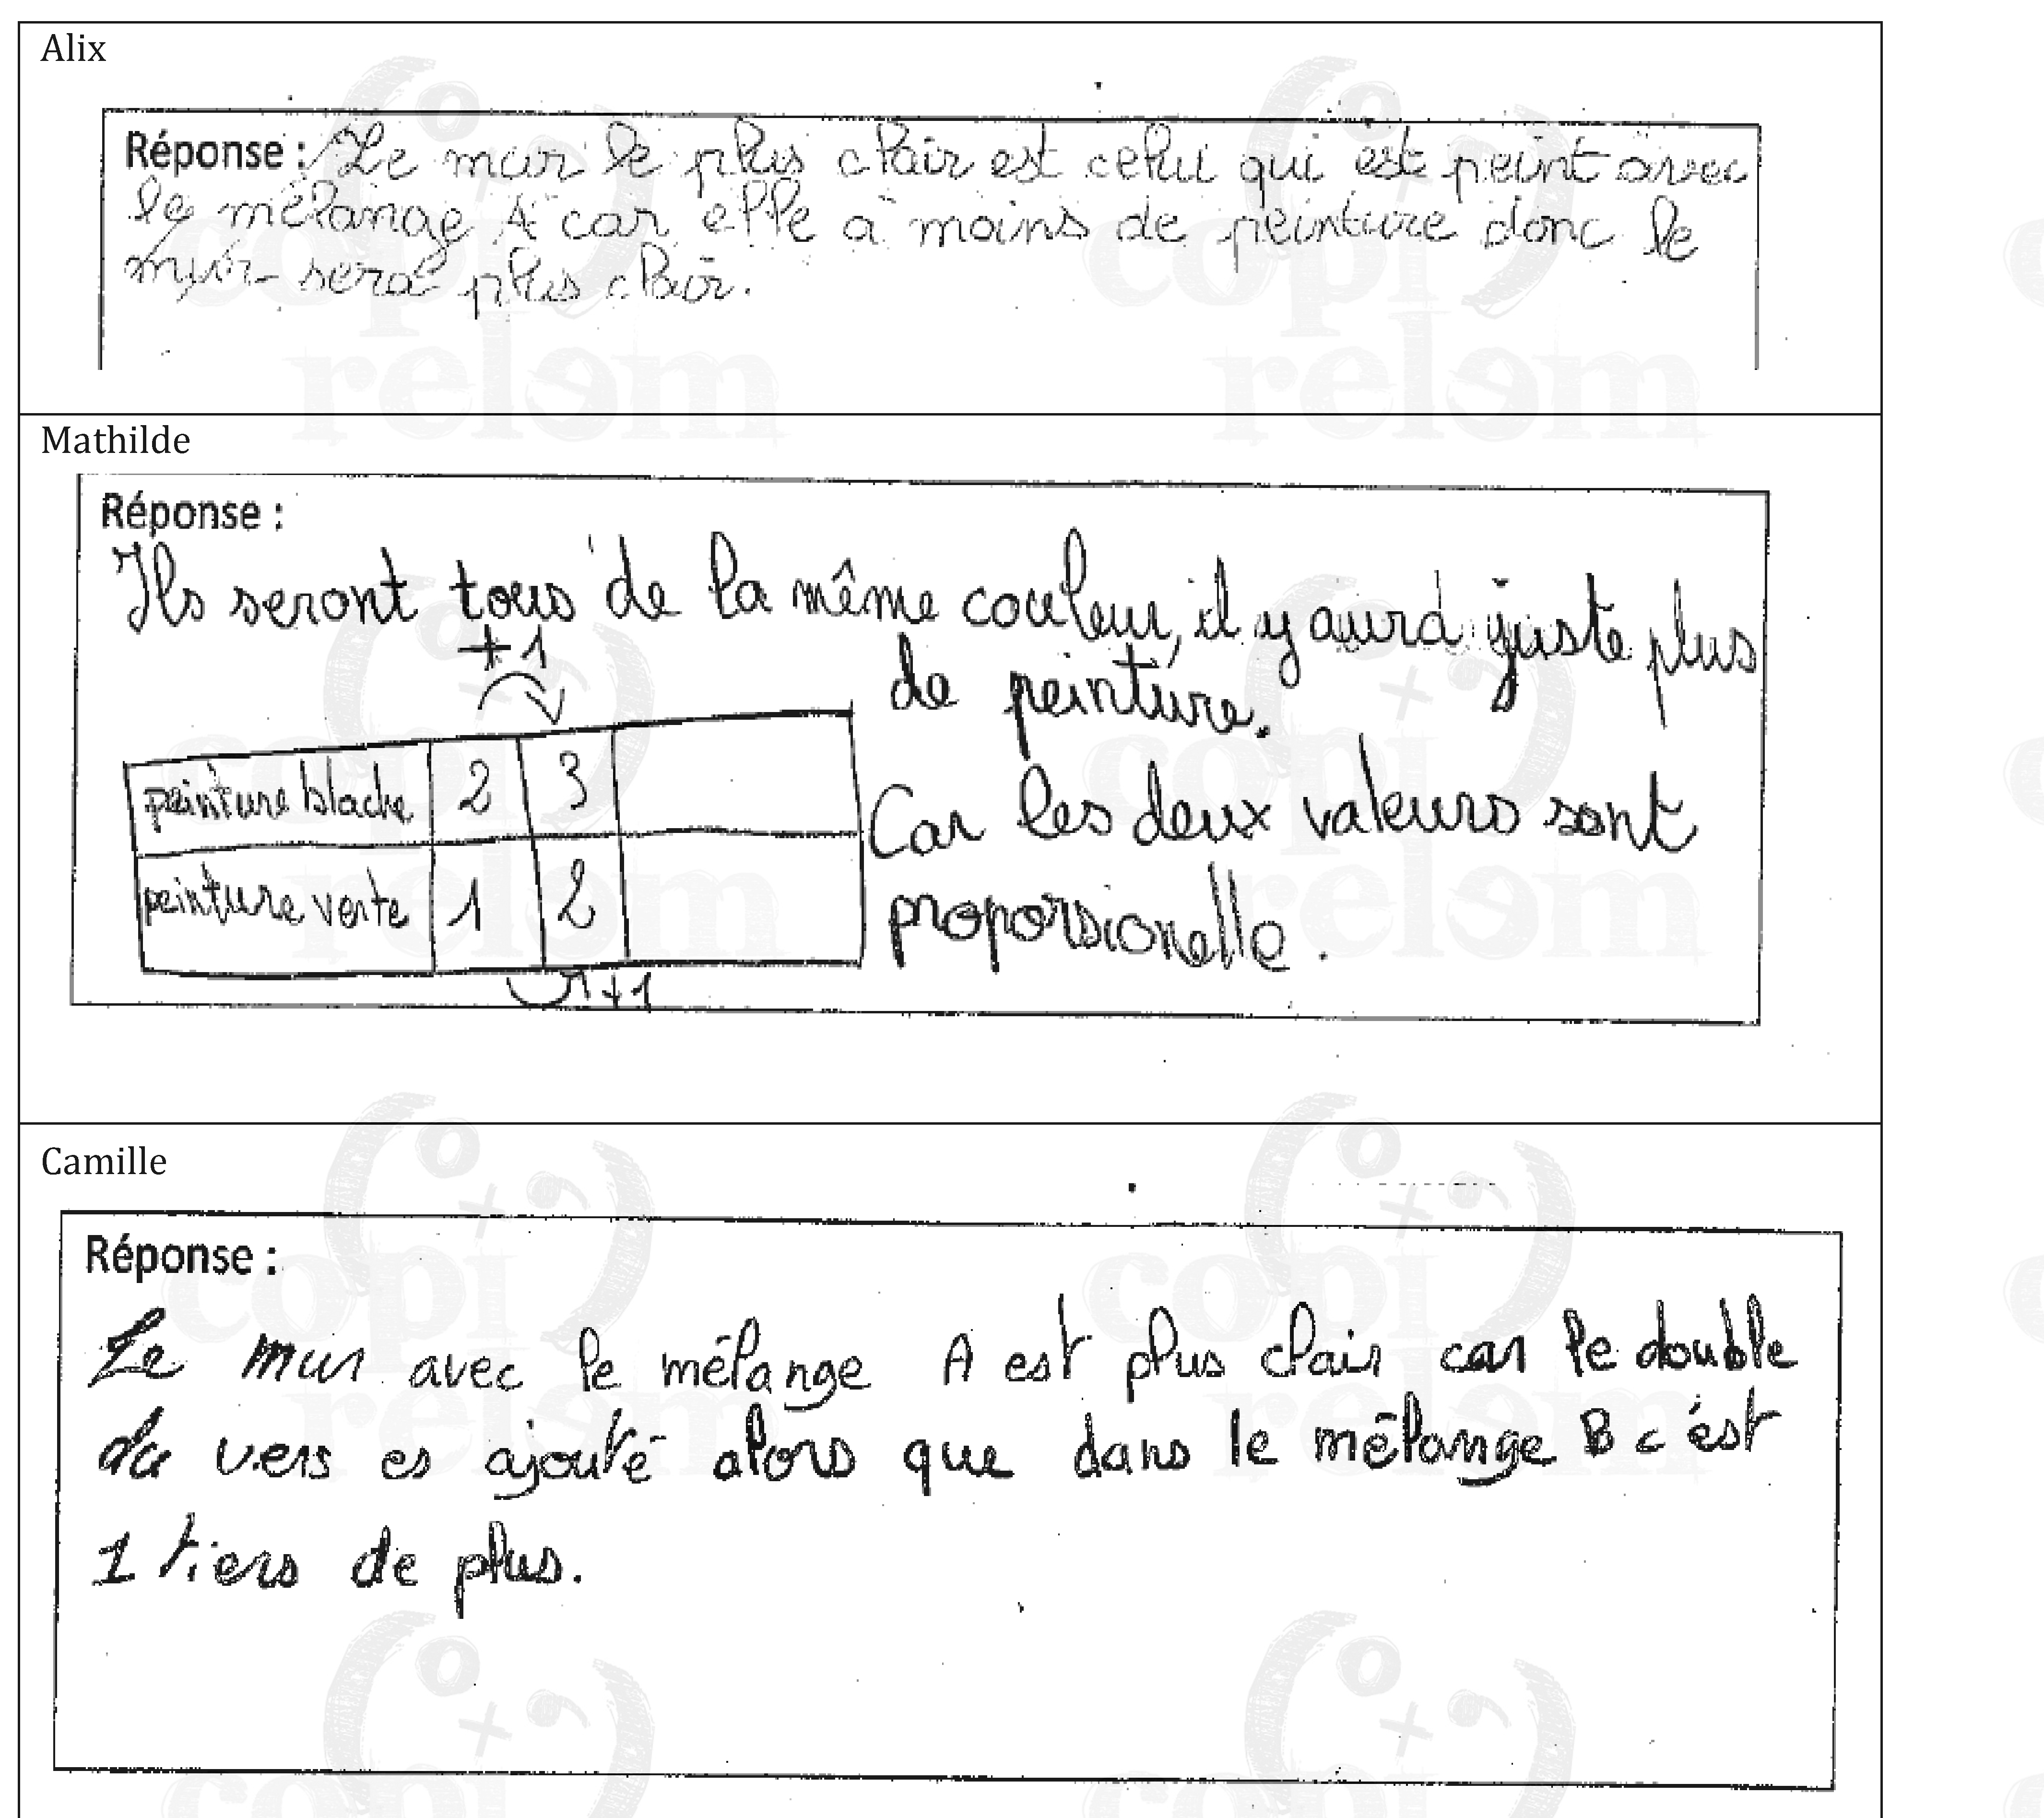 Alix
Réponse : Le mur le plus clair est celui qui est peint avec
le mélange A car elle a moins de peinture donc le
mur sera plus clair.
Mathilde
Réponse :
Ils seront tous de la même couleur, il y aura juste plus
de peinture.
+1
peinture blache 2 3
peinture verte 1 2
+1
Car les deux valeurs sont
proporsionelle.
Camille
Réponse :
Le mur avec le mélange A est plus clair car le double
du vers es ajouté alors que dans le mélange B c'est
1 tiers de plus.
copi
relem